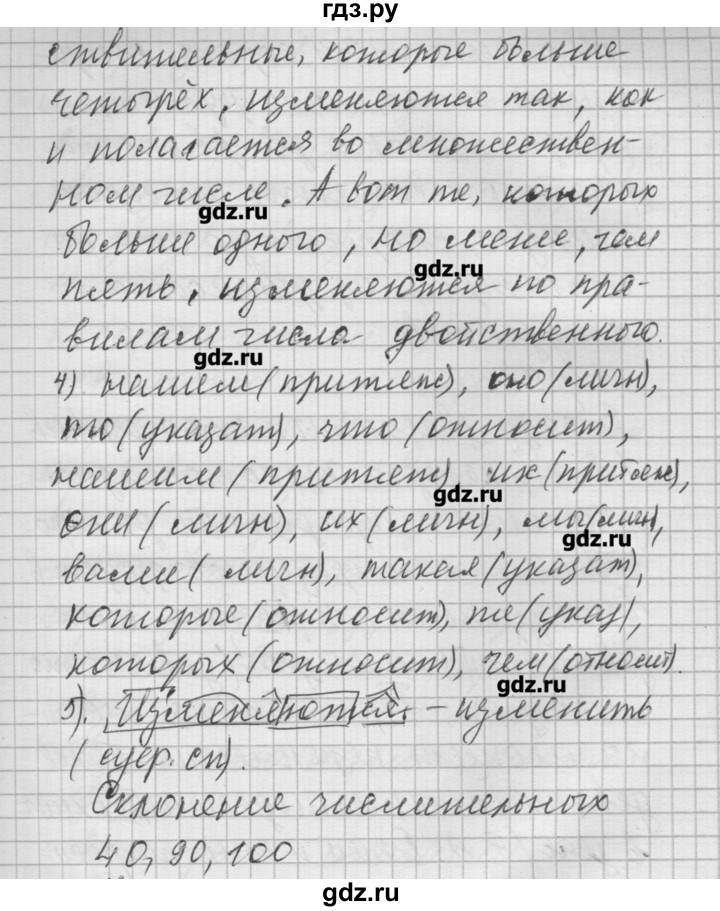 гдз.ру
ствительные, которые больше
четырёх, изменяются так, как
и полагается во множествен-
ном числе. А вот те, которых
gdz.ru
больше одного, но менее, чем
gdz.ru
пять, изменяются по пра-
вилам числа двойственного.
gdz.ru
4) нашем (притяж), оно (личн),
то (указат), что (относит),
нашим (притяж) их (притяж),
gdz.ru
они (личн), их (личн), мы (личн),
gdz.ru
вами (личн), такая (указат),
которые (относит), те (указ),
которых (относит), чем (относит).
gdz.ru
5). Изменяются - изменить
(сп).
Склонение числительных
40, 90, 100
gdz.ru